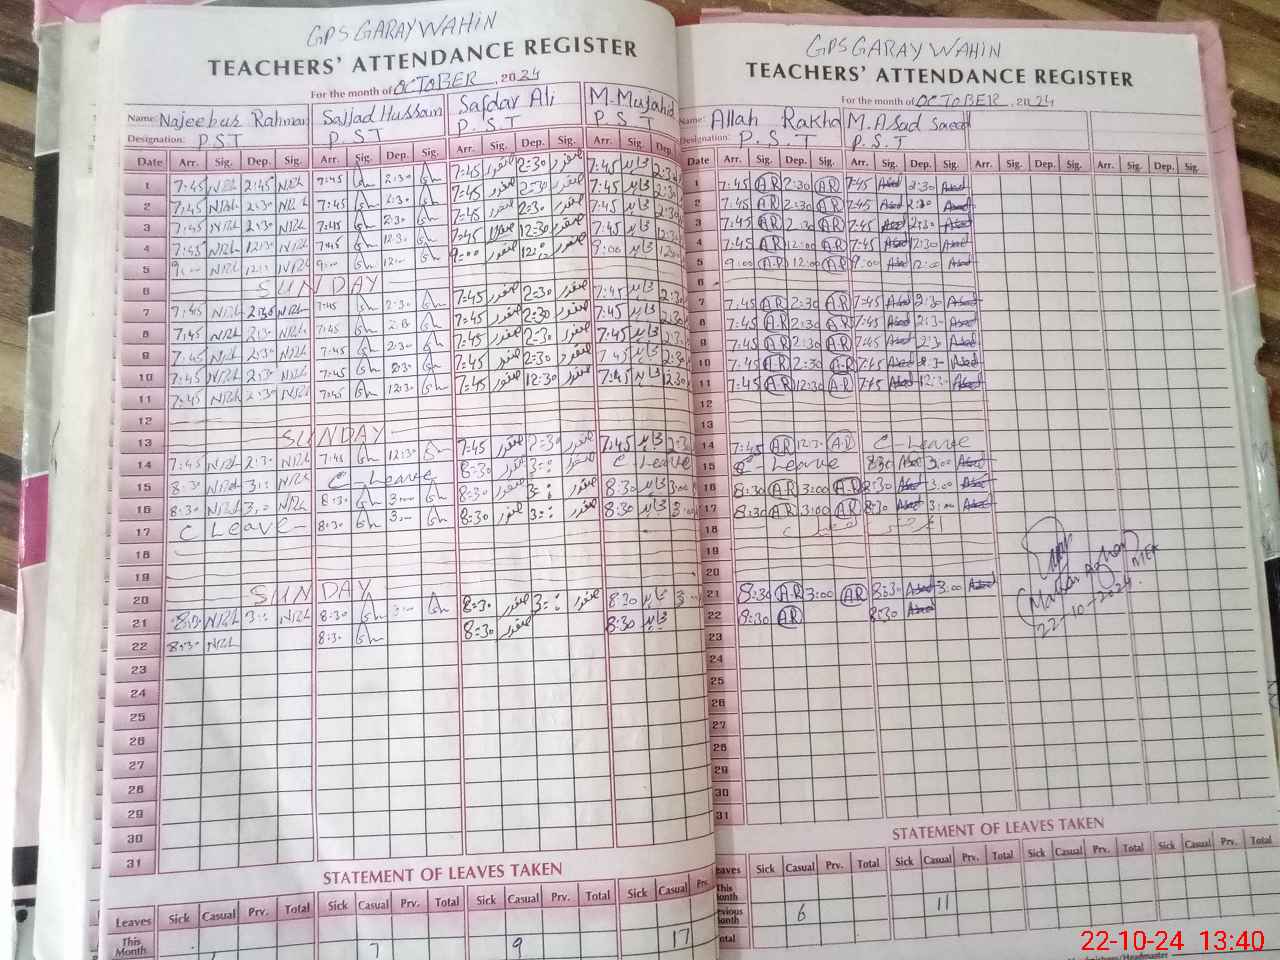 GPS GARAY WAHIN
TEACHERS' ATTENDANCE REGISTER
For the month of OCTOBER, 2024
Name: Najeebur Rahman Sajjad Hussain Safdar Ali M. Mujahid
Designation: P.S.T P.S.T P.S.T P.S.T
Date Arr. Sig. Dep. Sig. Arr. Sig. Dep. Sig. Arr. Sig. Dep. Sig. Arr. Sig. Dep.
1 7:45 NRL 2:45 NRL 7:45 2:30 7:45 صفدر 2:30 صفدر 7:45
2 7:45 NRL 2:30 NRL 7:45 2:30 7:45 صفدر 2:30 صفدر 7:45
3 7:45 NRL 2:30 NRL 7:45 2:30 7:45 صفدر 2:30 صفدر 7:45
4 7:45 NRL 12:30 NRL 7:45 12:30 7:45 صفدر 12:30 صفدر 7:45
5 9:00 NRL 12:00 NRL 9:00 12:00 9:00 صفدر 12:00 صفدر 9:00
6 SUNDAY
7 7:45 NRL 2:30 NRL 7:45 2:30 7:45 صفدر 2:30 صفدر 7:45
8 7:45 NRL 2:30 NRL 7:45 2:30 7:45 صفدر 2:30 صفدر 7:45
9 7:45 NRL 2:30 NRL 7:45 2:30 7:45 صفدر 2:30 صفدر 7:45
10 7:45 NRL 2:30 NRL 7:45 7:45 صفدر 2:30 صفدر 7:45
11 7:45 NRL 2:30 NRL 7:45 12:30 7:45 صفدر 12:30 صفدر 7:45 12:30
12
13 SUNDAY
14 7:45 NRL 2:30 NRL 7:45 12:30 7:45 صفدر 2:30 صفدر 7:45
15 8:30 NRL 3:00 NRL C-Leave 8:30 صفدر 3:00 صفدر C-Leave
16 8:30 NRL 3:00 NRL 8:30 3:00 8:30 صفدر 3:00 صفدر 8:30 3:00
17 C Leave 8:30 3:00 8:30 صفدر 3:00 صفدر 8:30 3:00
18
19
20 SUNDAY
21 8:30 NRL 3:00 NRL 8:30 3:00 8:30 صفدر 3:00 صفدر 8:30
22 8:30 NRL 8:30 8:30 صفدر 8:30
23
24
25
26
27
28
29
30
31
STATEMENT OF LEAVES TAKEN
Leaves Sick Casual Prv. Total Sick Casual Prv. Total Sick Casual Prv. Total Sick Casual Prv.
This Month 7 9 17
GPS GARAY WAHIN
TEACHERS' ATTENDANCE REGISTER
For the month of OCTOBER, 2024
Name: Allah Rakha M. Asad Saeed
Designation: P.S.T P.S.T
Date Arr. Sig. Dep. Sig. Arr. Sig. Dep. Sig. Arr. Sig. Dep. Sig. Arr. Sig. Dep. Sig.
1 7:45 AR 2:30 AR 7:45 Asad 2:30 Asad
2 7:45 AR 2:30 AR 7:45 Asad 2:30 Asad
3 7:45 AR 2:30 AR 7:45 Asad 2:30 Asad
4 7:45 AR 12:00 AR 7:45 Asad 12:30 Asad
5 9:00 AR 12:00 AR 9:00 Asad 12:00 Asad
6
7 7:45 AR 2:30 AR 7:45 Asad 2:30 Asad
8 7:45 AR 2:30 AR 7:45 Asad 2:30 Asad
9 7:45 AR 2:30 AR 7:45 Asad 2:30 Asad
10 7:45 AR 2:30 AR 7:45 Asad Asad
11 7:45 AR 12:30 AR 7:45 Asad 12:30 Asad
12
13
14 7:45 AR 12:30 AR C-Leave
15 C-Leave 8:30 Asad 3:00 Asad
16 8:30 AR 3:00 AR 8:30 Asad 3:00 Asad
17 8:30 AR 3:00 AR 8:30 Asad 3:00 Asad
18
19
20
21 8:30 AR 3:00 AR 8:30 Asad 3:00 Asad
22 8:30 AR 8:30 Asad
22-10-2024
23
24
25
26
27
28
29
30
31
STATEMENT OF LEAVES TAKEN
Leaves Sick Casual Prv. Total Sick Casual Prv. Total Sick Casual Prv. Total Sick Casual Prv. Total
This Month
Previous Month 6 11
Total
22-10-24 13:40